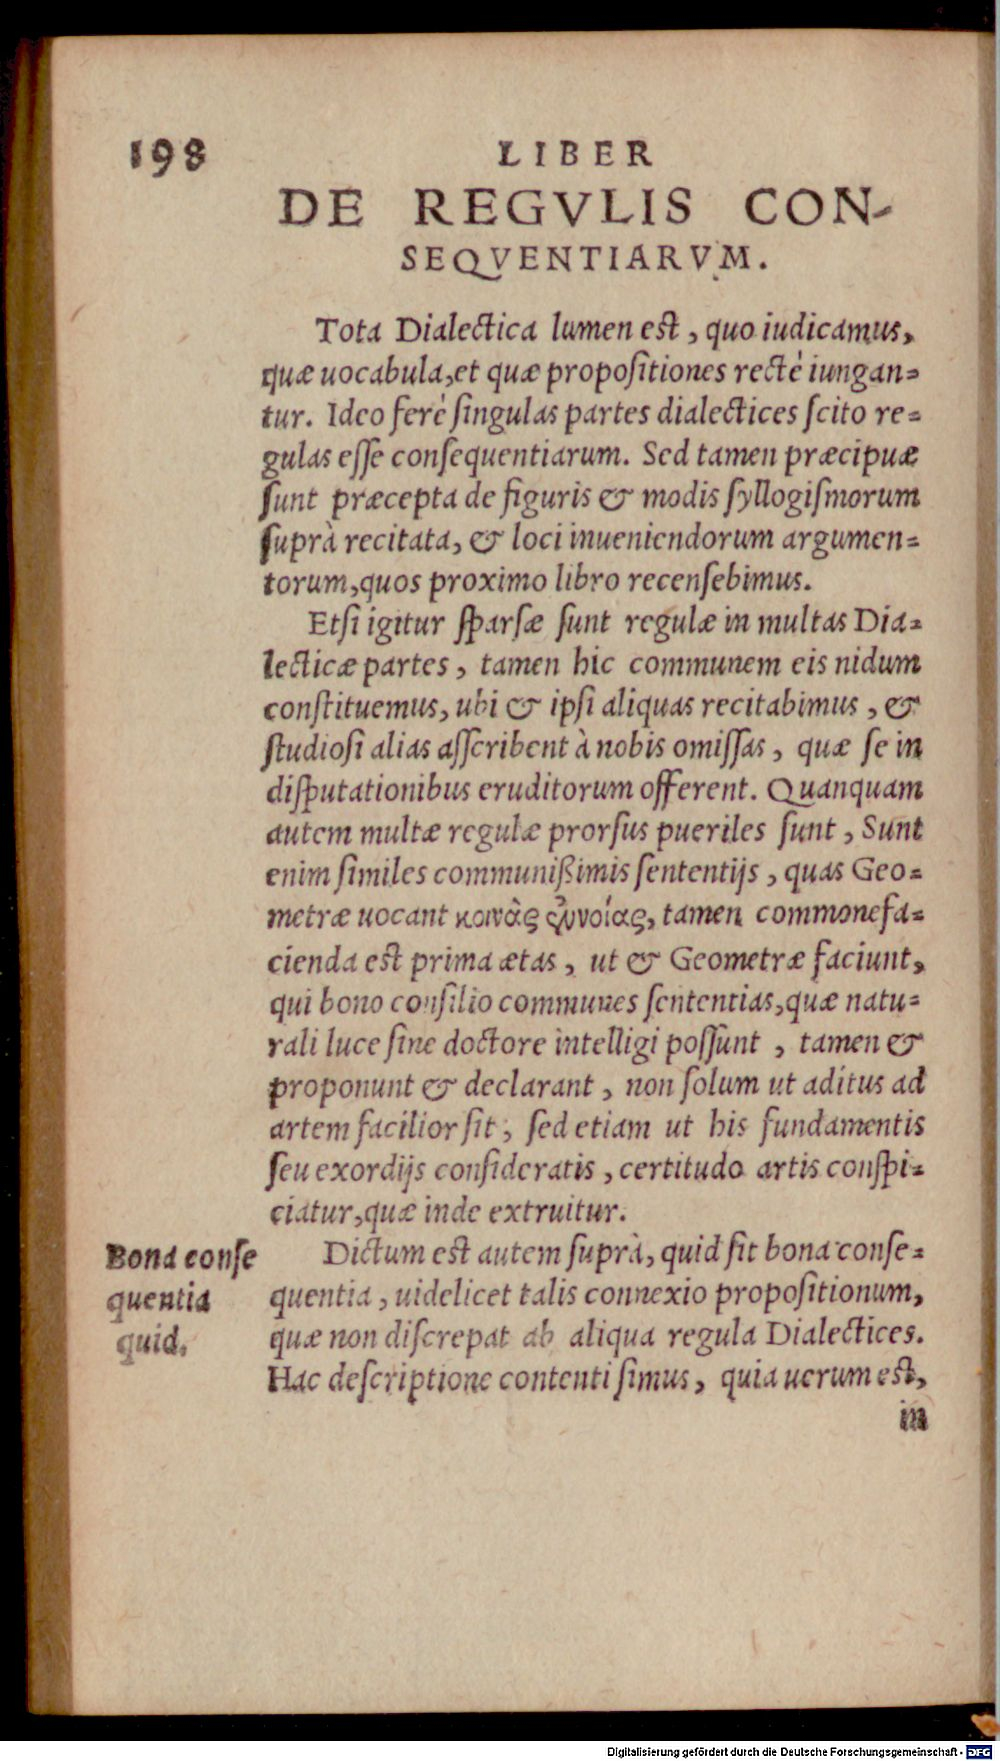 198
LIBER
DE REGVLIS CON-
SEQVENTIARVM.
Tota Dialectica lumen est, quo iudicamus,
quæ uocabula, et quæ propositiones rectè iungan=
tur. Ideo ferè singulas partes dialectices scito re=
gulas esse consequentiarum. Sed tamen præcipuæ
sunt præcepta de figuris & modis syllogismorum
suprà recitata, & loci inueniendorum argumen=
torum, quos proximo libro recensebimus.
Etsi igitur sparsæ sunt regulæ in multas Dia=
lecticæ partes, tamen hic communem eis nidum
constituemus, ubi & ipsi aliquas recitabimus, &
studiosi alias asscribent à nobis omissas, quæ se in
disputationibus eruditorum offerent. Quanquam
autem multæ regulæ prorsus pueriles sunt, Sunt
enim similes communißimis sententijs, quas Geo=
metræ uocant κοινὰς ἐννοίας, tamen commonefa=
cienda est prima ætas, ut & Geometræ faciunt,
qui bono consilio communes sententias, quæ natu=
rali luce sine doctore intelligi possunt, tamen &
proponunt & declarant, non solum ut aditus ad
artem facilior sit, sed etiam ut his fundamentis
seu exordijs consideratis, certitudo artis conspi=
ciatur, quæ inde extruitur.
Bona conse
quentia
quid.
Dictum est autem suprà, quid sit bona conse=
quentia, uidelicet talis connexio propositionum,
quæ non discrepat ab aliqua regula Dialectices.
Hac descriptione contenti simus, quia uerum est,
in
Digitalisierung gefördert durch die Deutsche Forschungsgemeinschaft - DFG